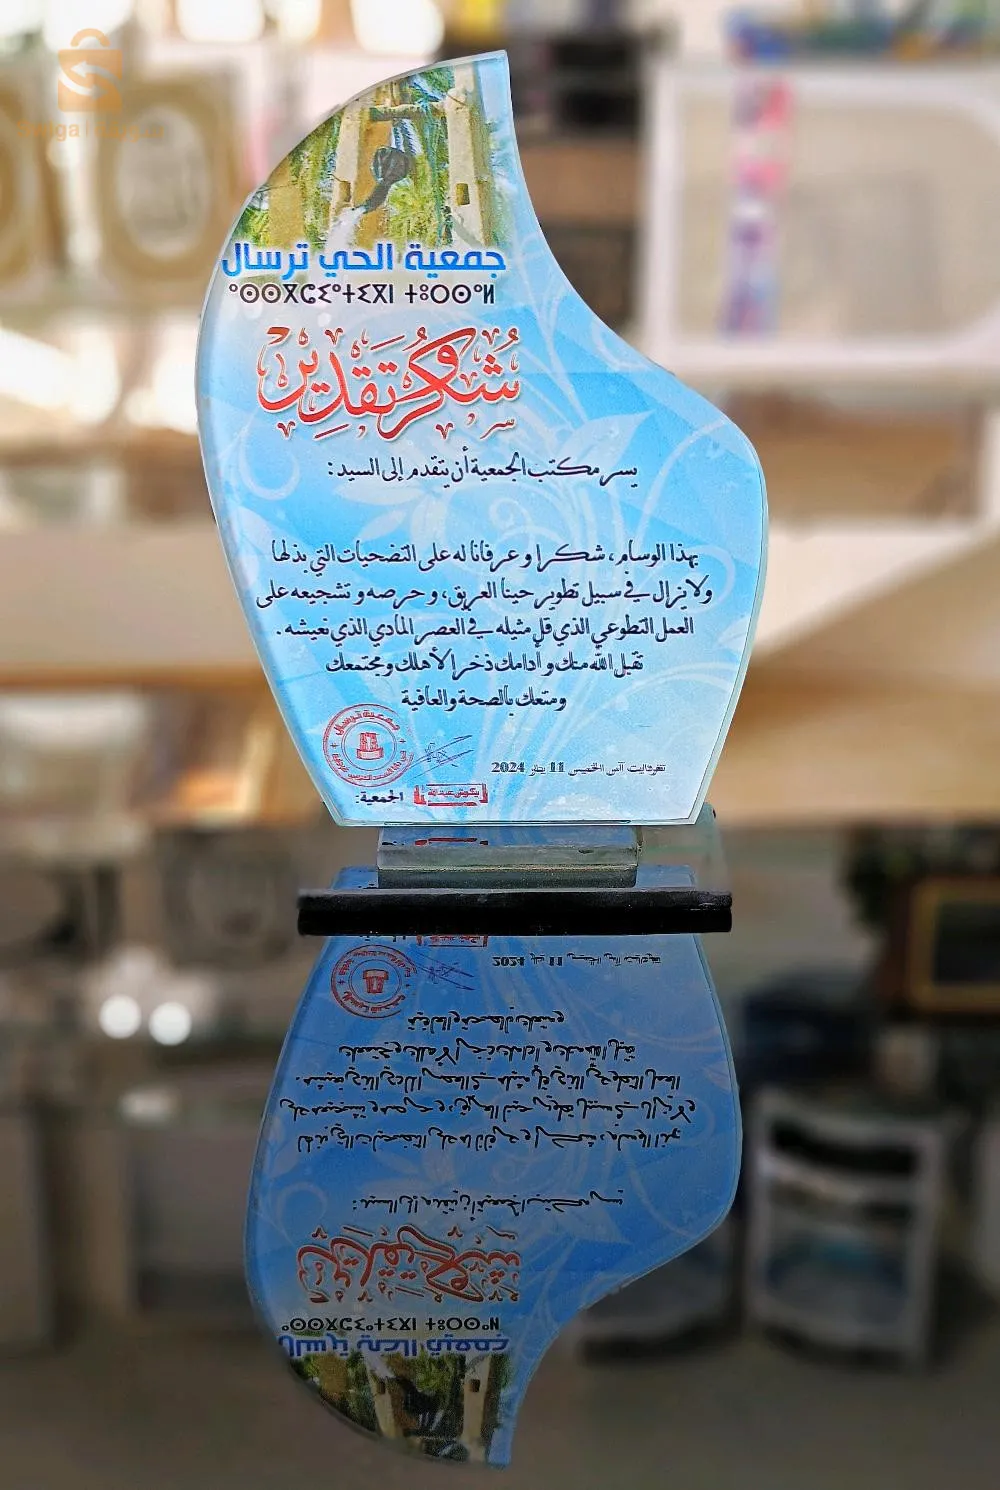 جمعية الحي ترسال
ⴰⵙⵙⴳⵎⵉⴰⵜⵉⴳⵏ ⵜⵓⵔⵙⴰⵍ
شُكْرٌ وَتَقْدِيرٌ
يسر مكتب الجمعية أن يتقدم إلى السيد :
بهذا الوسام، شكرا و عرفانا له على التضحيات التي بذلها
ولا يزال في سبيل تطوير حينا العريق، و حرصه و تشجيعه على
العمل التطوعي الذي قل مثيله في العصر المادي الذي نعيشه .
تقبل الله منك و أدامك ذخرا لأهلك ومجتمعك
ومتعك بالصحة والعافية
الخميس 11 يناير 2024
جمعية ترسال
الجمعية: